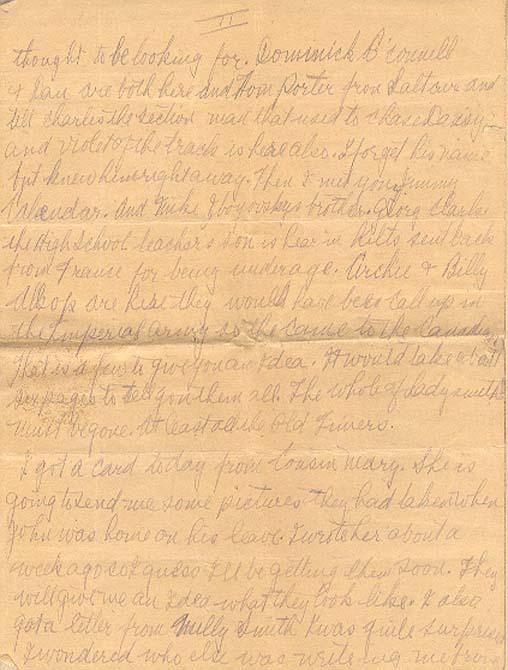 11
thought to be looking for. Dominick O'connell
& Dan are both here and Tom Porter from Saltair and
tell Charles the section man that used to chase Daisy
and Violet of the track is here also. I forget his name
but knew him right away. Then I met young Jimmy
Calendar. And Mike brother. Georg Clarke
the High School teacher's son is hear in Kilts sent back
from France for being underage. Archie & Billy
are here they would have been call up in
the Imperial army so the came to the Canadia
that is a few to give you an Idea. It would take about
six pages to tell you them all. The whole of Ladysmith
must be gone. At least all the Old Timers.
I got a card today from Cousin Mary. She is
going to send me some pictures they had taken when
John was home on his leave. I wrote her about a
week ago so I guess I'll be getting them soon. They
will give me an Idea what they look like. I also
got a letter from Milly Smith I was quite surprised
I wondered who else was writing me from